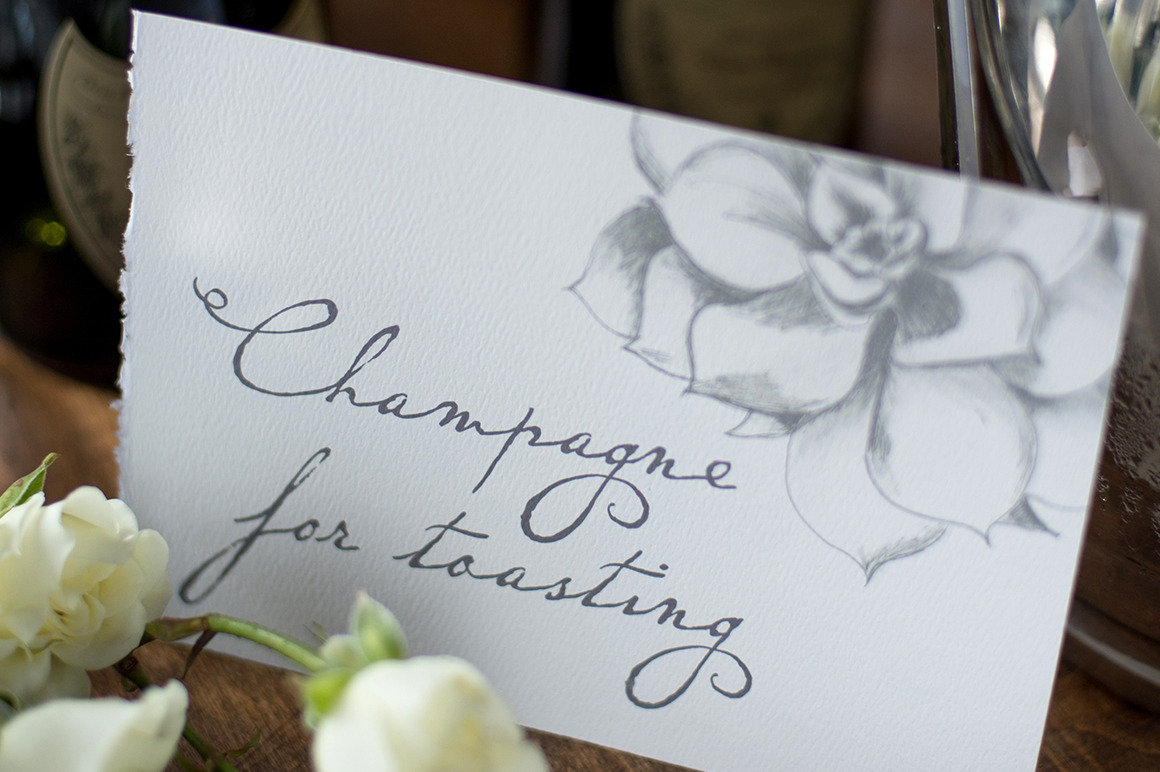 Champagne
for toasting